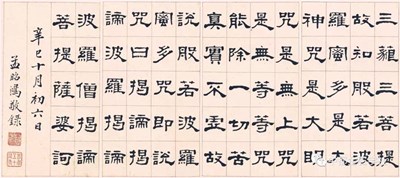 三藐三菩提
故知般若波
羅蜜多是大
神咒是大明
咒是無上咒
是無等等咒
能除一切苦
真實不虛故
說般若波羅
蜜多咒即說
咒曰揭諦揭
諦波羅揭諦
波羅僧揭諦
菩提薩婆訶
辛巳十月初六日
孟鴻敬錄